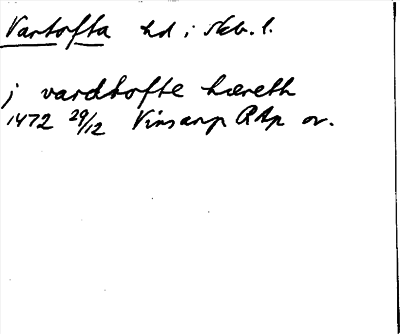 Vartofta hd i Skb. l.
j vardhofte hæreth
1472 29/12 Vinsarp RAp or.